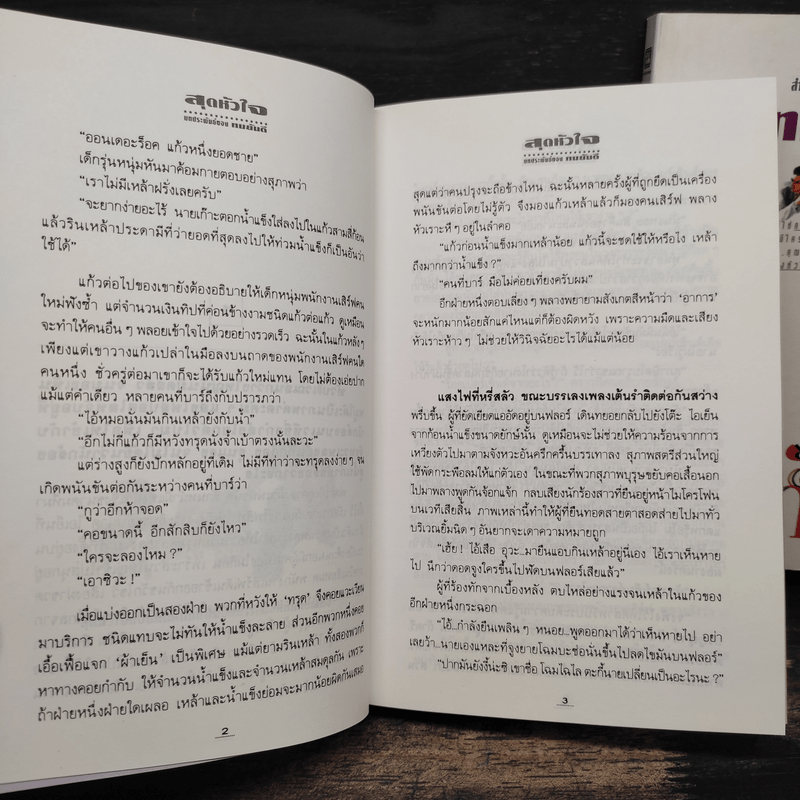 สุดหัวใจ
บทประพันธ์ของ ทมยันตี
“ออนเดอะร็อค แก้วหนึ่งยอดชาย”
เด็กรุ่นหนุ่มหันมาค้อมกายตอบอย่างสุภาพว่า
“เราไม่มีเหล้าฝรั่งเลยครับ”
“จะยากง่ายอะไร้ นายเก๊าะตอกน้ำแข็งใส่ลงไปในแก้วสามสี่ก้อน
แล้วรินเหล้าประดามีที่ว่ายอดที่สุดลงไปให้ท่วมน้ำแข็งก็เป็นอันว่า
ใช้ได้”
แก้วต่อไปของเขายังต้องอธิบายให้เด็กหนุ่มพนักงานเสิร์ฟคน
ใหม่ฟังซ้ำ แต่จำนวนเงินทิปที่ค่อนข้างงามชนิดแก้วต่อแก้ว ดูเหมือน
จะทำให้คนอื่น ๆ พลอยเข้าใจไปด้วยอย่างรวดเร็ว ฉะนั้นในแก้วหลังๆ
เพียงแต่เขาวางแก้วเปล่าในมือลงบนถาดของพนักงานเสิร์ฟคนใด
คนหนึ่ง ชั่วครู่ต่อมาเขาก็จะได้รับแก้วใหม่แทน โดยไม่ต้องเอ่ยปาก
แม้แต่คำเดียว หลายคนที่บาร์ถึงกับปรารภว่า
“ไอ้หมอนั่นมันกินเหล้ายังกับน้ำ”
“อีกไม่กี่แก้วก็มีหวังทรุดนั่งจ้ำเบ้าตรงนั้นละวะ”
แต่ร่างสูงก็ยังปักหลักอยู่ที่เดิม ไม่มีทีท่าว่าจะทรุดลงง่ายๆ จน
เกิดพนันขันต่อกันระหว่างคนที่บาร์ว่า
“กูว่าอีกห้าจอด”
“คอขนาดนี้ อีกสักสิบก็ยังไหว”
“ใครจะลองไหม ?”
“เอาซิวะ !”
เมื่อแบ่งออกเป็นสองฝ่าย พวกที่หวังให้ ‘ทรุด’ จึงคอยแวะเวียน
มาบริการ ชนิดแทบจะไม่ทันให้น้ำแข็งละลาย ส่วนอีกพวกหนึ่งคอย
เอื้อเฟื้อแจก ‘ผ้าเย็น’ เป็นพิเศษ แม้แต่ยามรินเหล้า ทั้งสองพวกก็
หาทางคอยกำกับ ให้จำนวนน้ำแข็งและจำนวนเหล้าสมดุลกัน เพราะ
ถ้าฝ่ายหนึ่งฝ่ายใดเผลอ เหล้าและน้ำแข็งย่อมจะมากน้อยผิดกันเสมอ
2
สุดหัวใจ
บทประพันธ์ของ ทมยันตี
สุดแต่ว่าคนปรุงจะถือข้างไหน ฉะนั้นหลายครั้งผู้ที่ถูกยึดเป็นเครื่อง
พนันขันต่อโดยไม่รู้ตัว จึงมองแก้วเหล้าแล้วก็มองคนเสิร์ฟ พลาง
หัวเราะหึๆ อยู่ในลำคอ
“แก้วก่อนน้ำแข็งมากเหล้าน้อย แก้วนี้จะชดใช้ให้หรือไง เหล้า
ถึงมากกว่าน้ำแข็ง ?”
“คนที่บาร์ มือไม่ค่อยเที่ยงครับผม”
อีกฝ่ายหนึ่งตอบเลี่ยงๆ พลางพยายามสังเกตสีหน้าว่า ‘อาการ’
จะหนักมากน้อยสักแค่ไหนแต่ก็ต้องผิดหวัง เพราะความมืดและเสียง
หัวเราะห้าวๆ ไม่ช่วยให้วินิจฉัยอะไรได้แม้แต่น้อย
แสงไฟที่หรี่สลัว ขณะบรรเลงเพลงเต้นรำติดต่อกันสว่าง
พรึ่บขึ้น ผู้ที่ยัดเยียดแออัดอยู่บนฟลอร์ เดินทยอยกลับไปยังโต๊ะ ไอเย็น
จากก้อนน้ำแข็งขนาดยักษ์นั้น ดูเหมือนจะไม่ช่วยให้ความร้อนจากการ
เหวี่ยงตัวไปมาตามจังหวะอันครึกครื้นบรรเทาลง สุภาพสตรีส่วนใหญ่
ใช้พัดกระพือลมให้แก่ตัวเอง ในขณะที่พวกสุภาพบุรุษขยับคอเสื้อนอก
ไปมาพลางพูดกันจ้อกแจ้ก กลบเสียงนักร้องสาวที่ยืนอยู่หน้าไมโครโฟน
บนเวทีเสียสิ้น ภาพเหล่านี้ทำให้ผู้ที่ยืนทอดสายตาสอดส่ายไปมาทั่ว
บริเวณยิ้มนิดๆ อันยากจะเดาความหมายถูก
“เฮ้ย ! ไอ้เสือ อุวะ..มายืนแอบกินเหล้าอยู่นี่เอง ไอ้เราเห็นหาย
ไป นึกว่าดอดจูงใครขึ้นไปพัดบนฟลอร์เสียแล้ว”
ผู้ที่ร้องทักจากเบื้องหลัง ตบไหล่อย่างแรงจนเหล้าในแก้วของ
อีกฝ่ายหนึ่งกระฉอก
“ไอ้..กำลังยืนเพลินๆ หนอย..พูดออกมาได้ว่าเห็นหายไป อย่า
เลยว้า..นายเองแหละที่จูงยายโฉมบะช่อนั่นขึ้นไปลดไขมันบนฟลอร์”
“ปากมันยังงี้น่ะซิ เขาชื่อ โฉมไฉไล ตะกี้นายเปลี่ยนเป็นอะไรนะ ?”
3